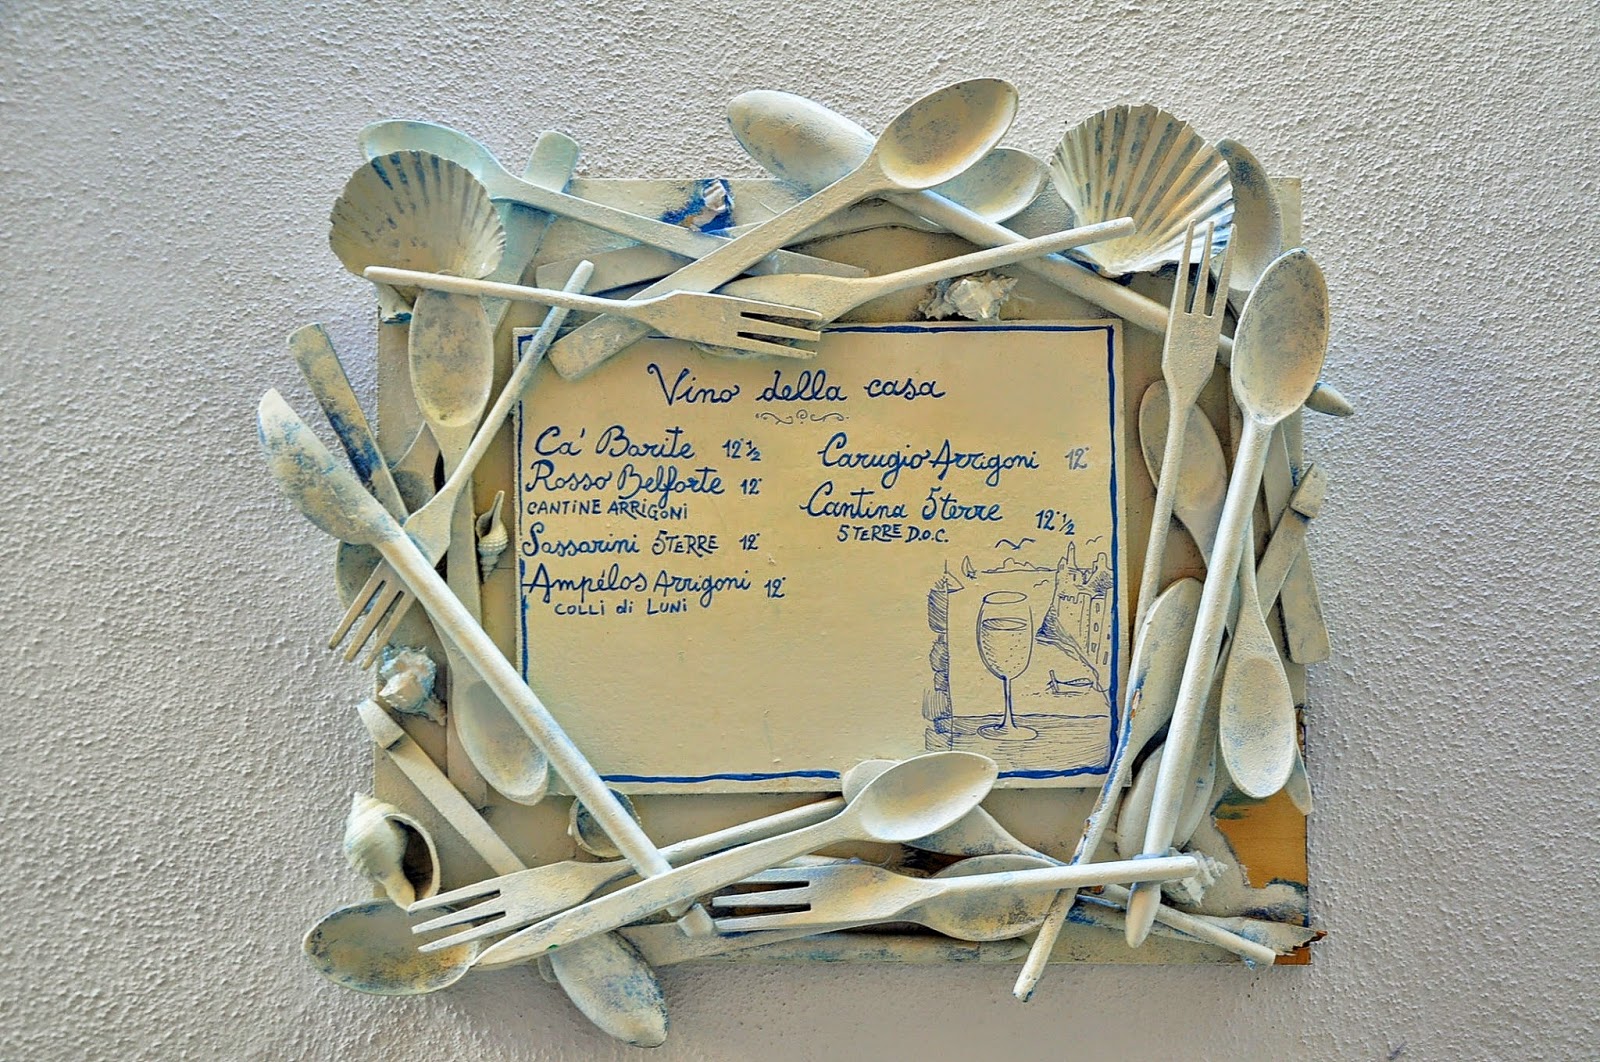 Vino della casa
Ca' Barite 12°½
Rosso Belforte 12°
CANTINE ARRIGONI
Sassarini 5TERRE 12°
Ampélos Arrigoni 12°
COLLI di LUNI
Carugio Arrigoni 12°
Cantina 5terre 12°½
5TERRE D.O.C.